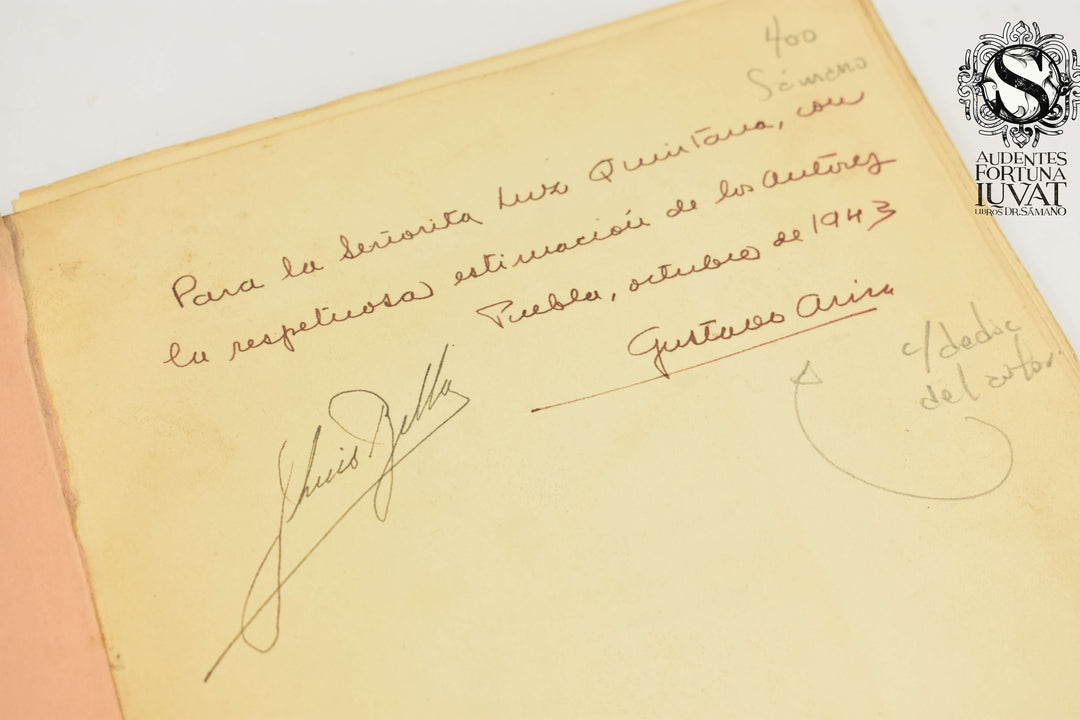 400
Sámano
Para la Señorita Luz Quintana, con
la respetuosa estimación de los autores
Puebla, octubre de 1943
Gustavo Ariza
Luis Bello
c/dedic
del autor.
S
AUDENTES
FORTUNA
IUVAT
LIBROS DR. SÁMANO